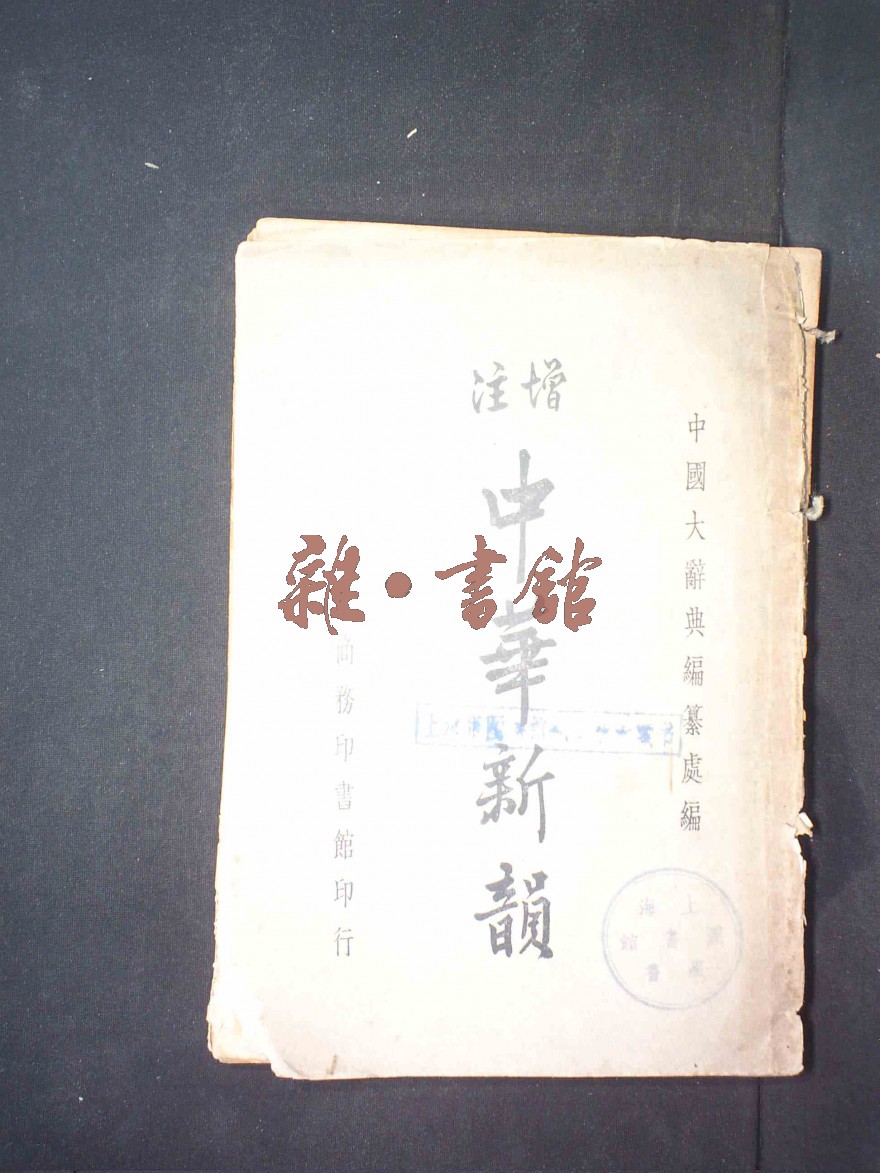 中國大辭典編纂處編
增注
中華新韻
商務印書館印行
雜·書館
上海
書館
書